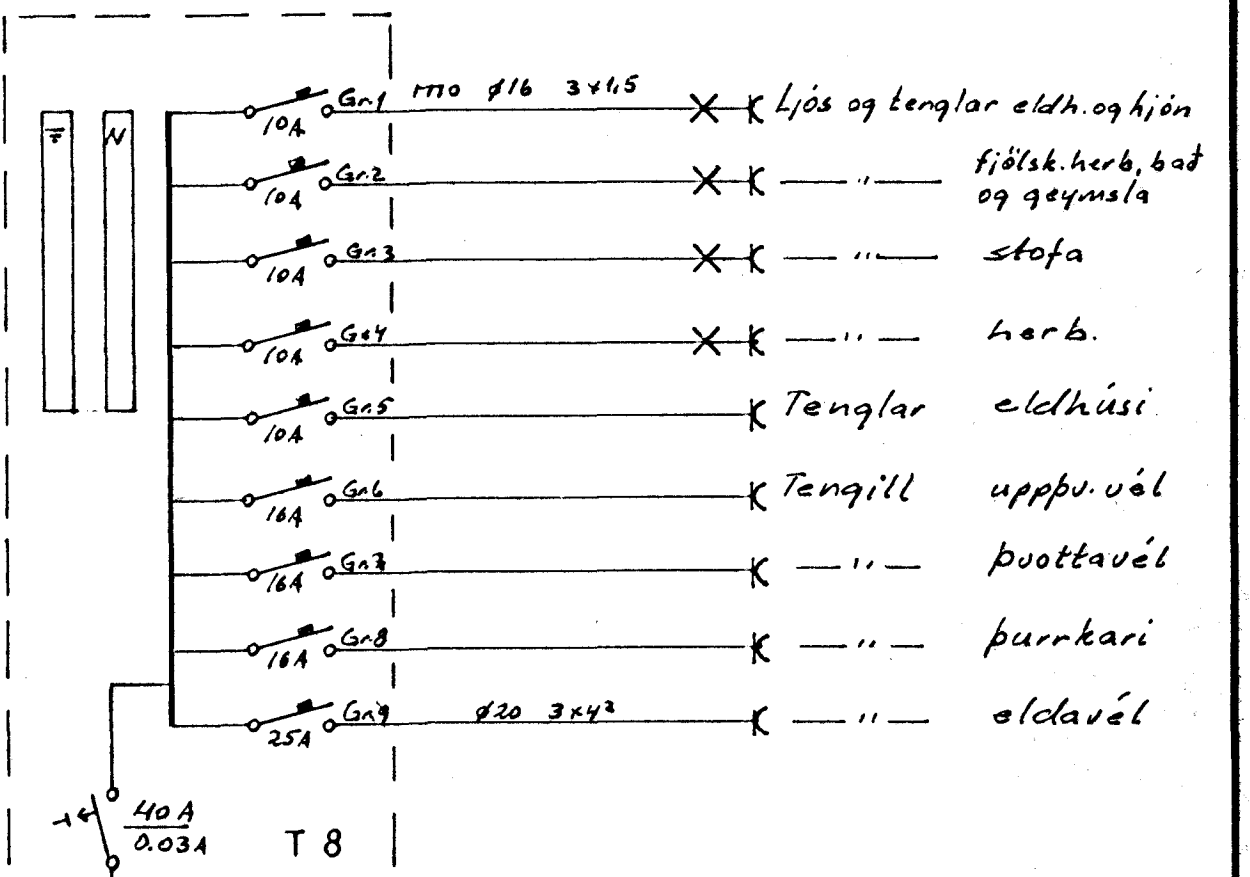 Gr.1 mo ø16 3x1,5 Ljós og tenglar eldh. og hjón
10A
N
Gr.2 — " — fjölsk.herb, bað
10A og geymsla
Gr.3 — " — stofa
10A
Gr4 — " — herb.
10A
Gr.5 Tenglar eldhúsi
10A
Gr.6 Tengill uppþv.vél
16A
Gr.7 — " — þvottavél
16A
Gr.8 — " — þurrkari
16A
Gr.9 ø20 3x4² — " — eldavél
25A
40A
0.03A
T 8